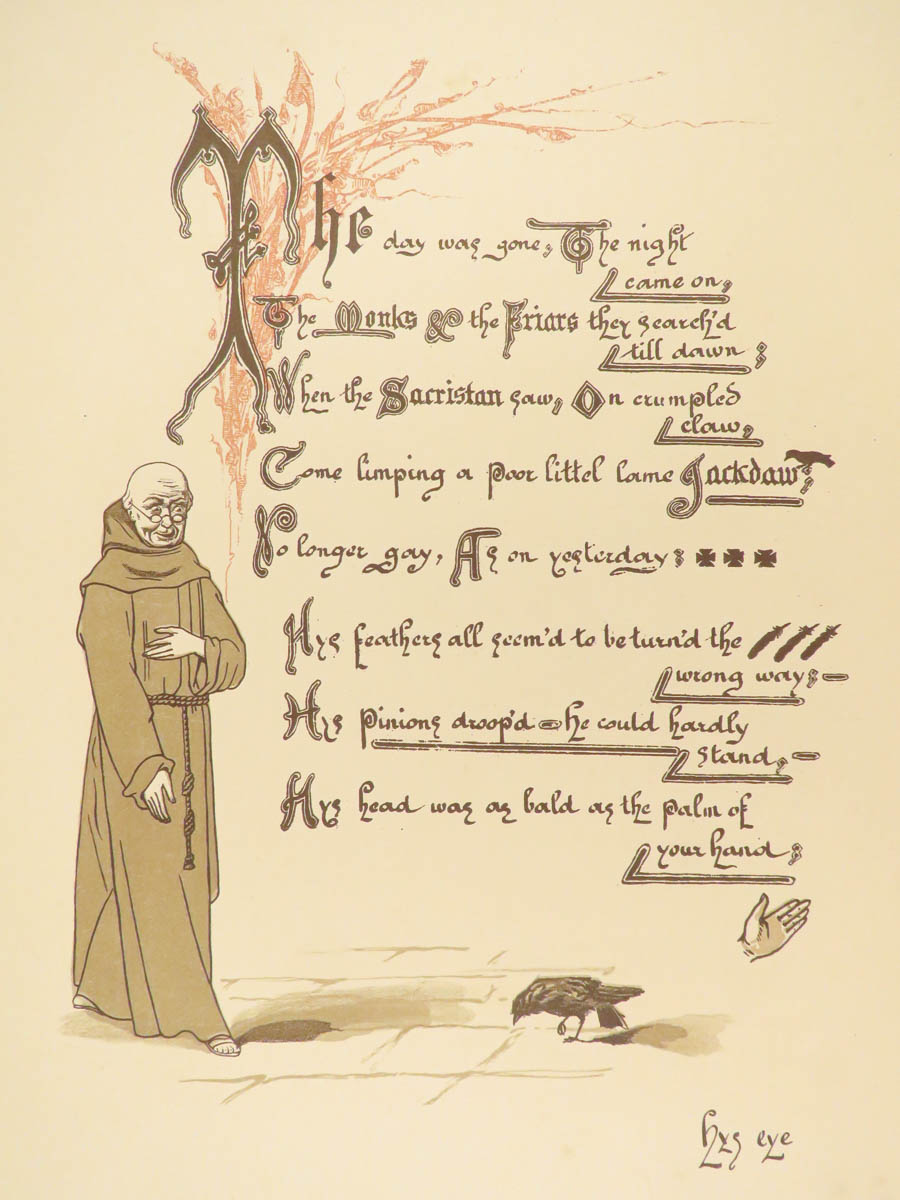 The day was gone, The night
came on,
The Monks & the Friars they search'd
till dawn;
When the Sacristan saw, On crumpled
claw,
Come limping a poor littel lame Jackdaw;
No longer gay, As on yesterday;
Hys feathers all seem'd to be turn'd the
wrong way;—
Hys pinions droop'd – he could hardly
stand,—
Hys head was as bald as the palm of
your hand;
hys eye